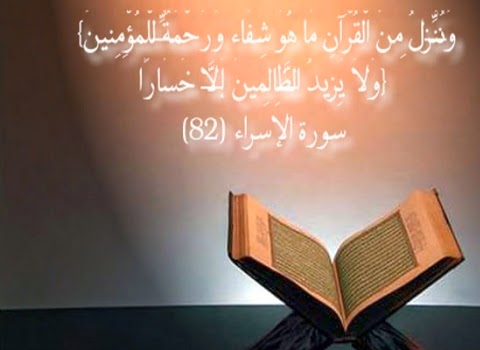 {وَنُنَزِّلُ مِنَ الْقُرْآنِ مَا هُوَ شِفَاء وَرَحْمَةٌ لِّلْمُؤْمِنِينَ
وَلاَ يَزِيدُ الظَّالِمِينَ إَلاَّ خَسَارًا}
سورة الإسراء (82)